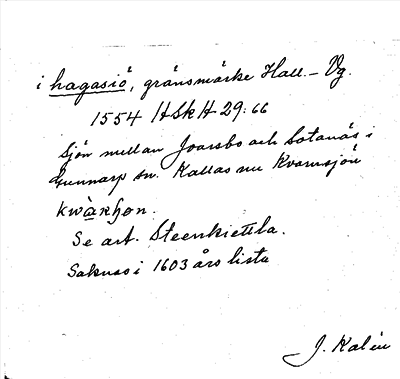 i hagasiö, gränsmärke Hall. – Vg.
1554 HSkH 29:66
Sjön mellan Joarsbo och Lotanäs i
Gunnarp sn. Kallas nu Kvarnsjön
kwàrnʃøn.
Se art. Steenkietla.
Saknas i 1603 års lista
J. Kalén